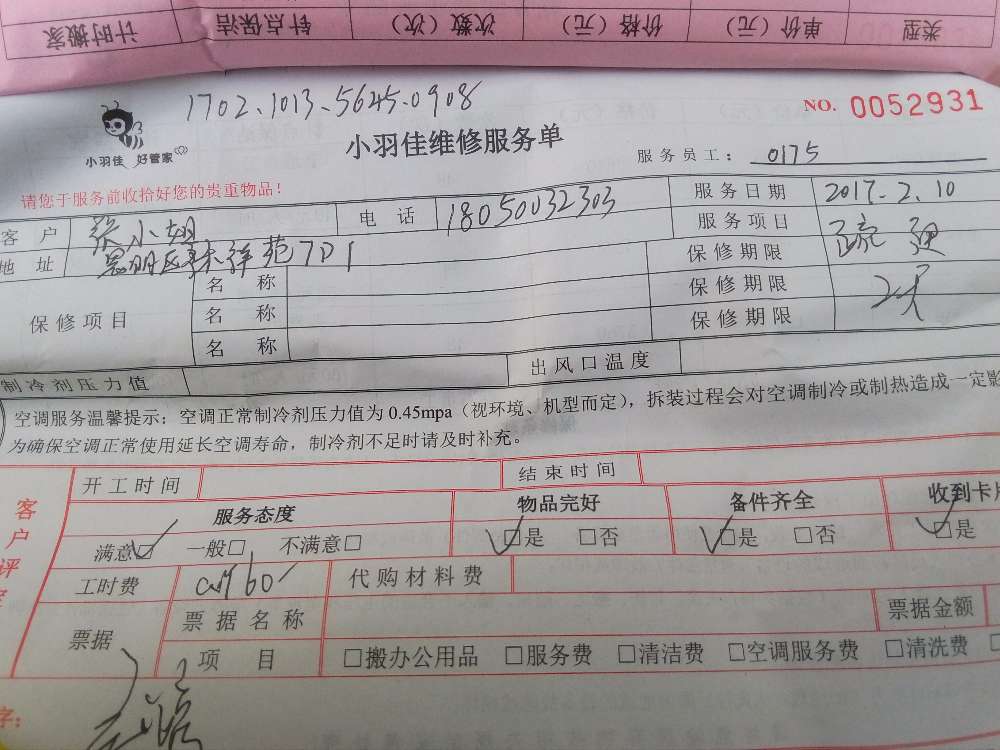 计时搬家 针点保洁 次数（次） 价格（元） 单价（元） 类型
1702.1013.5645.0908
NO. 0052931
小羽佳 好管家
小羽佳维修服务单
服务员工： 0175
请您于服务前收拾好您的贵重物品！
客户 张小姐 电话 18050032303 服务日期 2017.2.10
地址 思明区 祥苑7D1 服务项目 疏通
保修项目 名称 保修期限 2天
名称 保修期限
名称 保修期限
制冷剂压力值 出风口温度
空调服务温馨提示：空调正常制冷剂压力值为0.45mpa（视环境、机型而定），拆装过程会对空调制冷或制热造成一定影
为确保空调正常使用延长空调寿命，制冷剂不足时请及时补充。
客户评 开工时间 结束时间
服务态度 物品完好 备件齐全 收到卡片
满意☑ 一般□ 不满意□ ☑是 □否 ☑是 □否 ☑是
工时费 60 代购材料费
票据 票据名称 票据金额
项目 □搬办公用品 □服务费 □清洁费 □空调服务费 □清洗费
字：